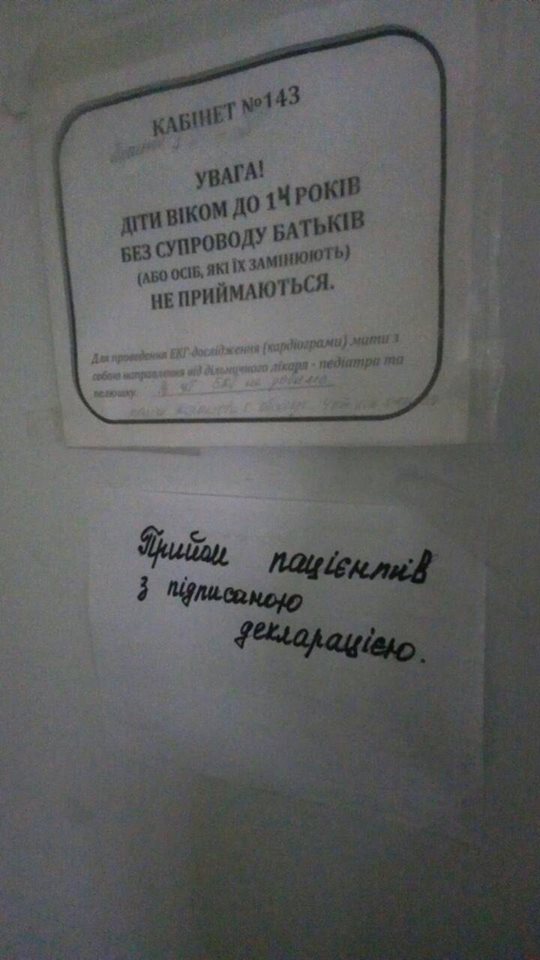 КАБІНЕТ №143
УВАГА!
ДІТИ ВІКОМ ДО 14 РОКІВ
БЕЗ СУПРОВОДУ БАТЬКІВ
(АБО ОСІБ, ЯКІ ЇХ ЗАМІНЮЮТЬ)
НЕ ПРИЙМАЮТЬСЯ.
Для проведення ЕКГ-дослідження (кардіограми) мати з
собою направлення від дільничного лікаря - педіатра та
пелюшку.
Прийом пацієнтів
з підписаною
декларацією.